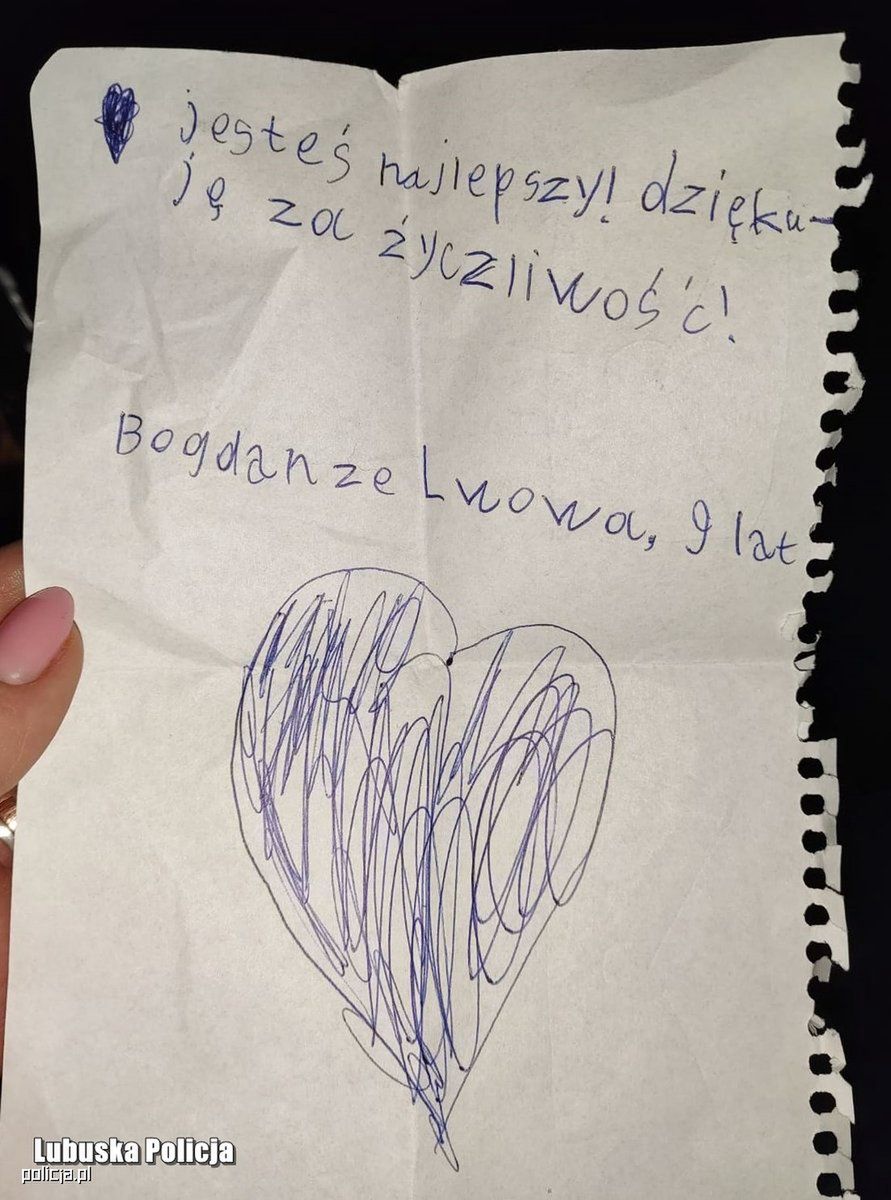 jesteś najlepszy! dzięku-
ję za życzliwość!
Bogdan ze Lwowa, 9 lat
Lubuska Policja
policja.pl